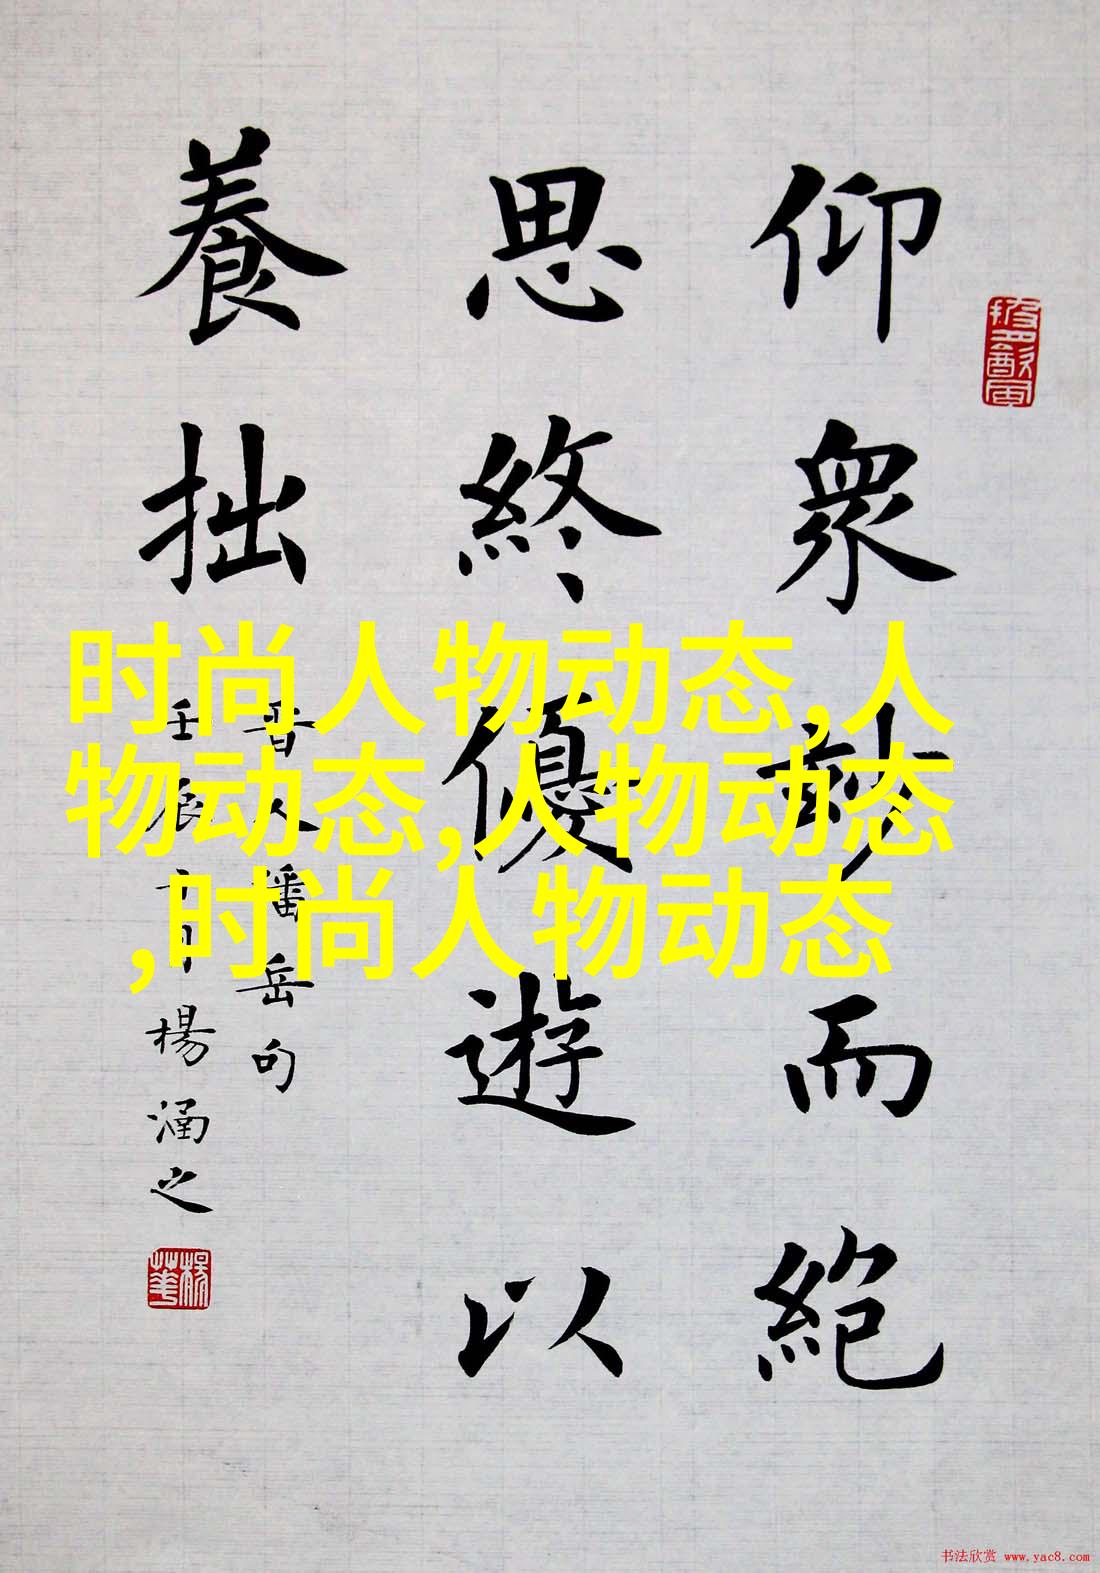 仰眾妙而絕
思終優遊以
養拙
晋人潘岳句
壬辰月楊涵之
时尚人物动态,人
物动态,人物动态
,时尚人物动态
书法欣赏 www.yac8.com